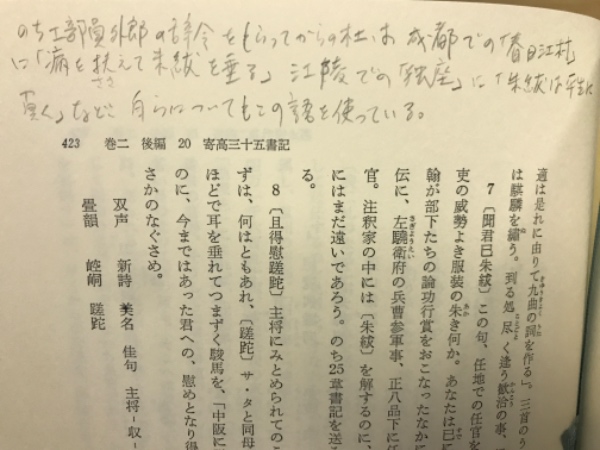 のち工部員外郎の辞令をもらってからの杜は、成都での「春日江村」
に「病を扶えて朱紱を垂る」、江陵での「独座」に「朱紱は平生に
負く」など、自らについてもこの語を使っている。
423 巻二 後編 20 寄高三十五書記
適は是れに由りて九曲の詞を作る」。三首のう
は騏驎を繡う。到る処 尽く逢う歓洽の事、
7〔聞君已朱紱〕この句、任地での任官を
吏の威勢よき服装の朱き何か。あなたは已に
翰が部下たちの論功行賞をおこなったなかに
伝に、左驍衛府の兵曹参軍事、正八品下に任
官。注釈家の中には〔朱紱〕を解するのに、
にはまだ遠いであろう。のち25章書記を送る
る。
8〔且得慰蹉跎〕主将にみとめられてのこ
ずは、何はともあれ、〔蹉跎〕サ・タと同母
ほどで耳を垂れてつまずく駿馬を、「中阪に
のに、今まではあった君への、慰めとなり得
さかのなぐさめ。
双声 新詩 美名 佳句 主将-収-
畳韻 崆峒 蹉跎